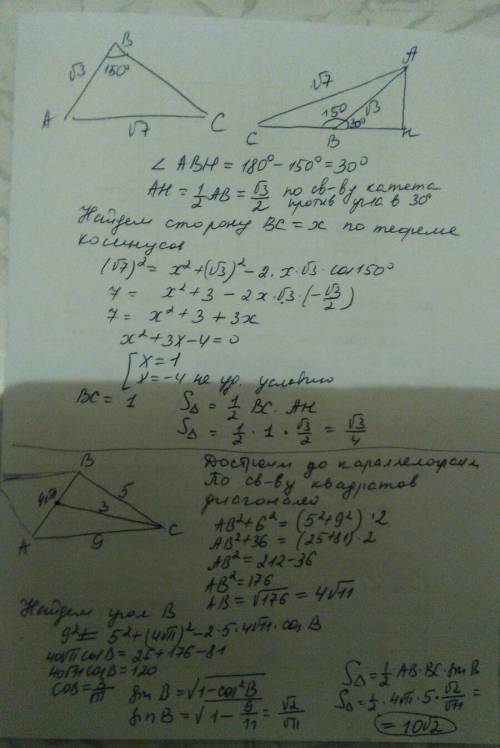 B
√3
150°
A
√7
C
A
√7
150
√3
30°
C
B
H
∠ ABH = 180° - 150° = 30°
AH = 1/2 AB = √3/2 по св-ву катета
против угла в 30°
Найдем сторону BC = x по теореме
косинусов
(√7)² = x² + (√3)² - 2·x·√3·cos150°
7 = x² + 3 - 2x·√3·(-√3/2)
7 = x² + 3 + 3x
x² + 3x - 4 = 0
[ x = 1
x = -4 не уд. условию
BC = 1
S△ = 1/2 BC · AH
S△ = 1/2 · 1 · √3/2 = √3/4
B
4√11
5
3
A
9
C
Достроим до параллелограмм
По св-ву квадратов
диагоналей
AB² + 6² = (5² + 9²)·2
AB² + 36 = (25+81)·2
AB² = 212 - 36
AB² = 176
AB = √176 = 4√11
Найдем угол B
9² = 5² + (4√11)² - 2·5·4√11·cos B
40√11 cos B = 25 + 176 - 81
40√11 cos B = 120
cos B = 3/√11
sin B = √1-cos²B
sin B = √1 - 9/11 = √2/√11
S△ = 1/2 AB·BC·sin B
S△ = 1/2 · 4√11 · 5 · √2/√11 =
= 10√2